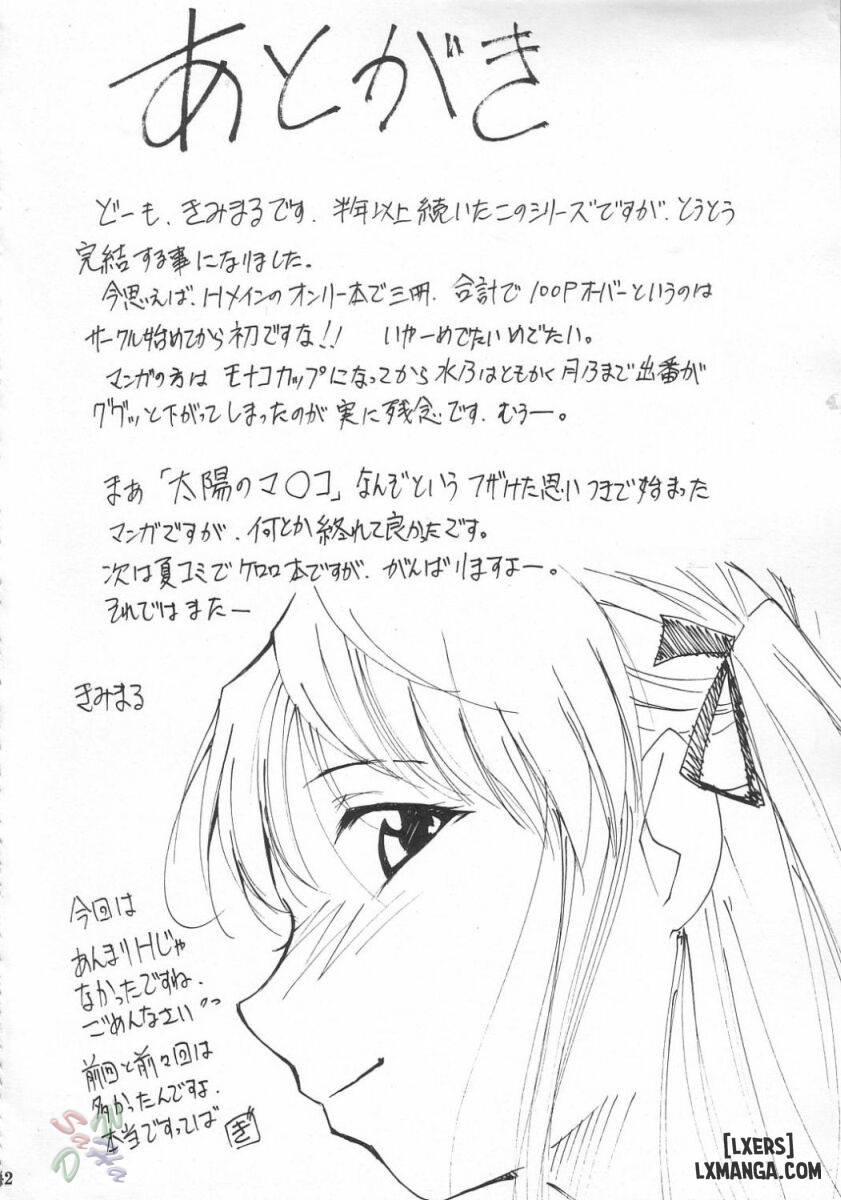 あとがき
どーも、きみまるです。半年以上続いたこのシリーズですが、とうとう
完結する事になりました。
今思えば、Hメインのオンリー本で三冊、合計で100Pオーバーというのは
サークル始めてから初ですな!! いやーめでたいめでたい。
マンガの方はモナコカップになってから水乃はともかく月乃まで出番が
ググッと下がってしまったのが実に残念です、むぅー。
まぁ「太陽のマ○コ」なんぞというフザけた思いつきで始まった
マンガですが、何とか終れて良かったです。
次は夏コミでケロロ本ですが、がんばりますよー。
それではまたー
きみまる
今回は
あんまりHじゃ
なかったですね、
ごめんなさい
前回と前々回は
多かったんですよ、
本当ですってば
ぎ
42
[LXERS]
LXMANGA.COM